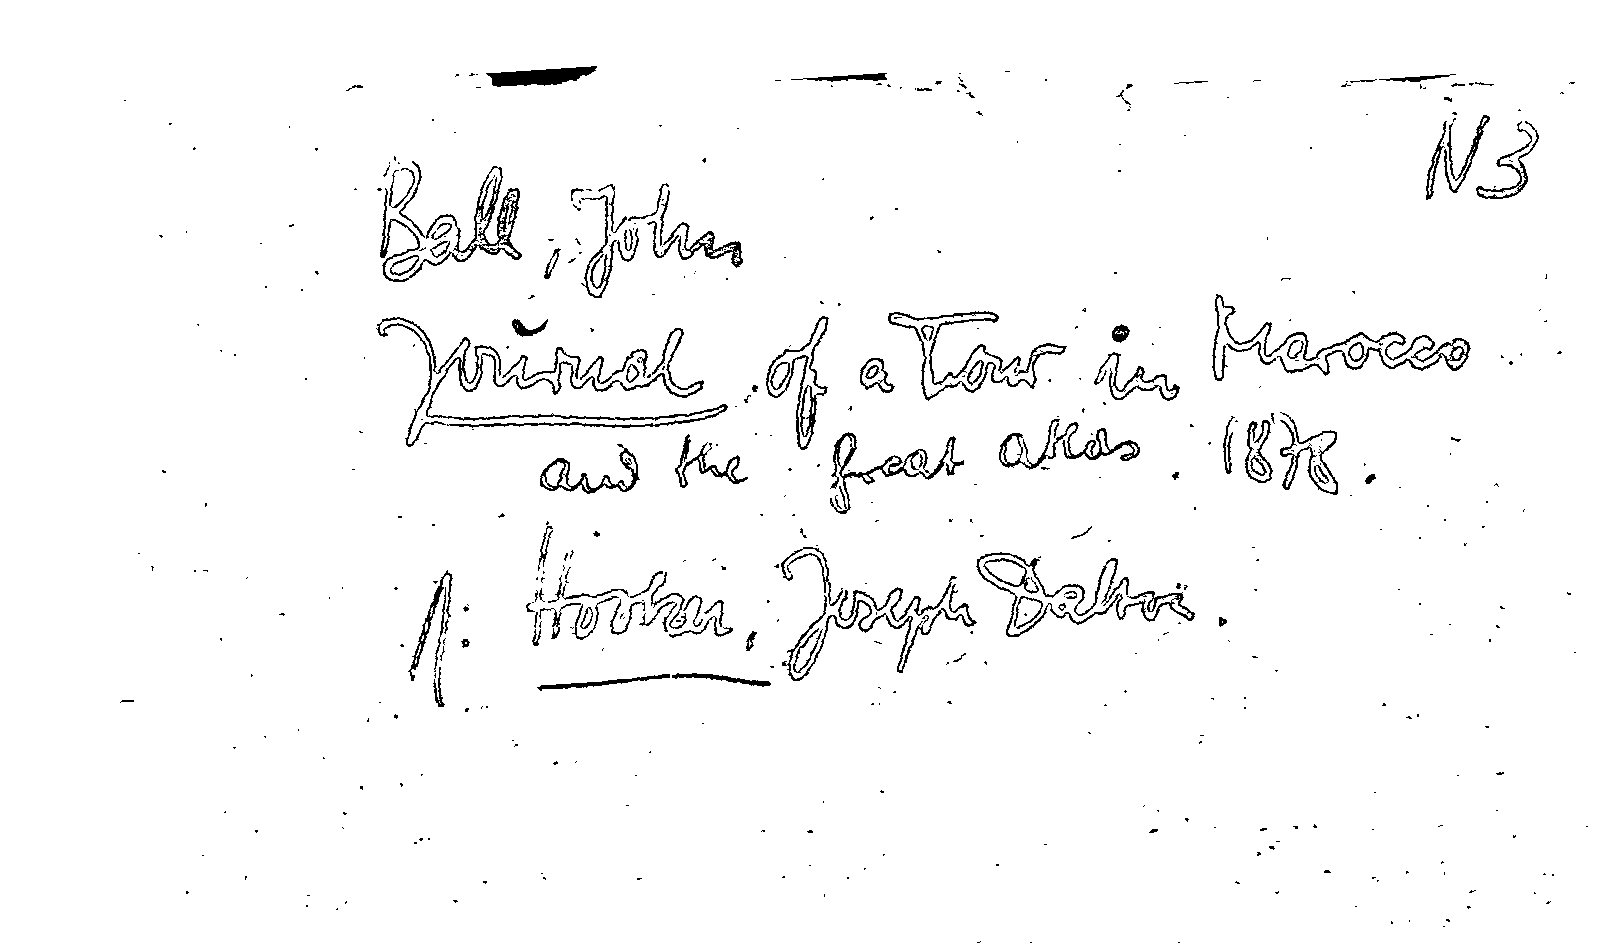 N3
Ball, John
Journal of a Tour in Marocco
and the great atlas. 1878.
1: Hooker, Joseph Dalton.